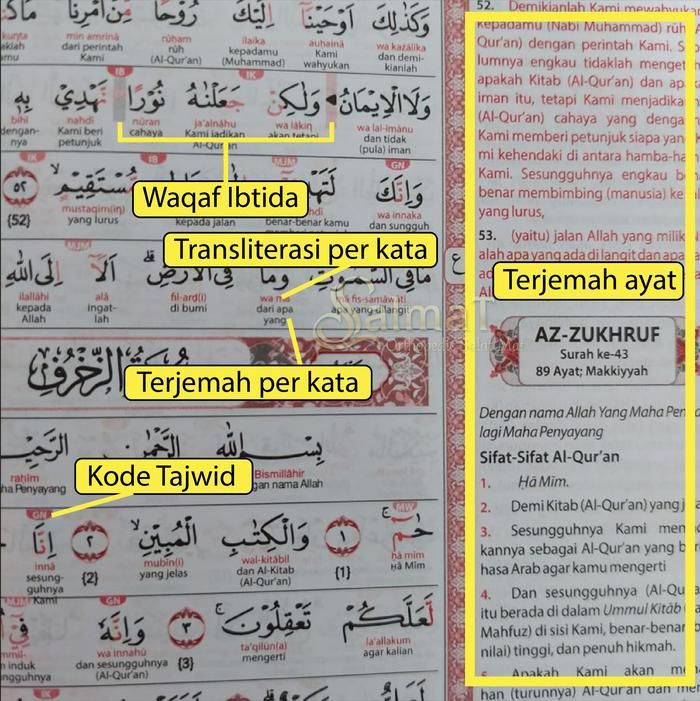 وَكَذٰلِكَ اَوْحَيْنَآ اِلَيْكَ رُوْحًا مِّنْ اَمْرِنَا
wa każālika auḥainā ilaika rūḥam min amrinā kunta
dan demi- Kami kepadamu rūh dari perintah
kianlah wahyukan (Muhammad) (Al-Qur'an) Kami
IB IK
وَلَا الْاِيْمَانُ وَلٰكِنْ جَعَلْنٰهُ نُوْرًا نَّهْدِيْ بِهٖ
wa lal-īmānu wa lākin ja'alnāhu nūran nahdi bihi
dan tidak akan tetapi Kami jadikan cahaya Kami beri dengan-
(pula) iman Al-Qur'an petunjuk nya
Waqaf Ibtida
IK IB MJM GN
وَاِنَّكَ مُّسْتَقِيْمٍ ٥٢
wa innaka mustaqīm(in)
dan sungguh benar-benar kamu kepada jalan yang lurus {52}
Transliterasi per kata
MJM
مَا فِى السَّمٰوٰتِ وَمَا فِى الْاَرْضِ اَلَآ اِلَى اللّٰهِ
mā fis-samāwāti wa mā fil-arḍ(i) alā ilallāhi
apa yang dilangit dari apa di bumi ingat- kepada
yang lah Allah
Terjemah per kata
سُوْرَةُ الزُّخْرُفِ
بِسْمِ اللّٰهِ الرَّحْمٰنِ الرَّحِيْمِ
Bismillāhir raḥīm
dengan nama Allah Maha Penyayang
Kode Tajwid
GN MW
حٰمۤ ١ وَالْكِتٰبِ الْمُبِيْنِ ٢ اِنَّا
ḥā mīm wal-kitābil mubīn(i) innā
Ḥā Mīm {1} dan Al-Kitab yang jelas {2} sesung-
(Al-Qur'an) guhnya
Kami
MJM GN
لَعَلَّكُمْ تَعْقِلُوْنَ ٣ وَاِنَّهٗ فِيْٓ
la'allakum ta'qilūn(a) wa innahū
agar kalian mengerti {3} dan sesungguhnya induk
(Al-Qur'an)
52. Demikianlah Kami mewahyukan
kepadamu (Nabi Muhammad) rūh
Qur'an) dengan perintah Kami. S
lumnya engkau tidaklah menget
apakah Kitab (Al-Qur'an) dan apa
iman itu, tetapi Kami menjadika
(Al-Qur'an) cahaya yang dengan
Kami memberi petunjuk siapa yan
mi kehendaki di antara hamba-ha
Kami. Sesungguhnya engkau be
benar membimbing (manusia) ke
yang lurus,
53. (yaitu) jalan Allah yang milik
alah apa yang ada di langit dan apa
Terjemah ayat
ع
AZ-ZUKHRUF
Surah ke-43
89 Ayat; Makkiyyah
Dengan nama Allah Yang Maha Pen
lagi Maha Penyayang
Sifat-Sifat Al-Qur'an
1. Ḥā Mīm.
2. Demi Kitab (Al-Qur'an) yang j
3. Sesungguhnya Kami men
kannya sebagai Al-Qur'an yang b
hasa Arab agar kamu mengerti
4. Dan sesungguhnya (Al-Qu
itu berada di dalam Ummul Kitāb
Mahfuz) di sisi Kami, benar-benar b
nilai) tinggi, dan penuh hikmah.
5. Apakah Kami akan me
han (turunnya) Al-Qur'an dan me
Salmal